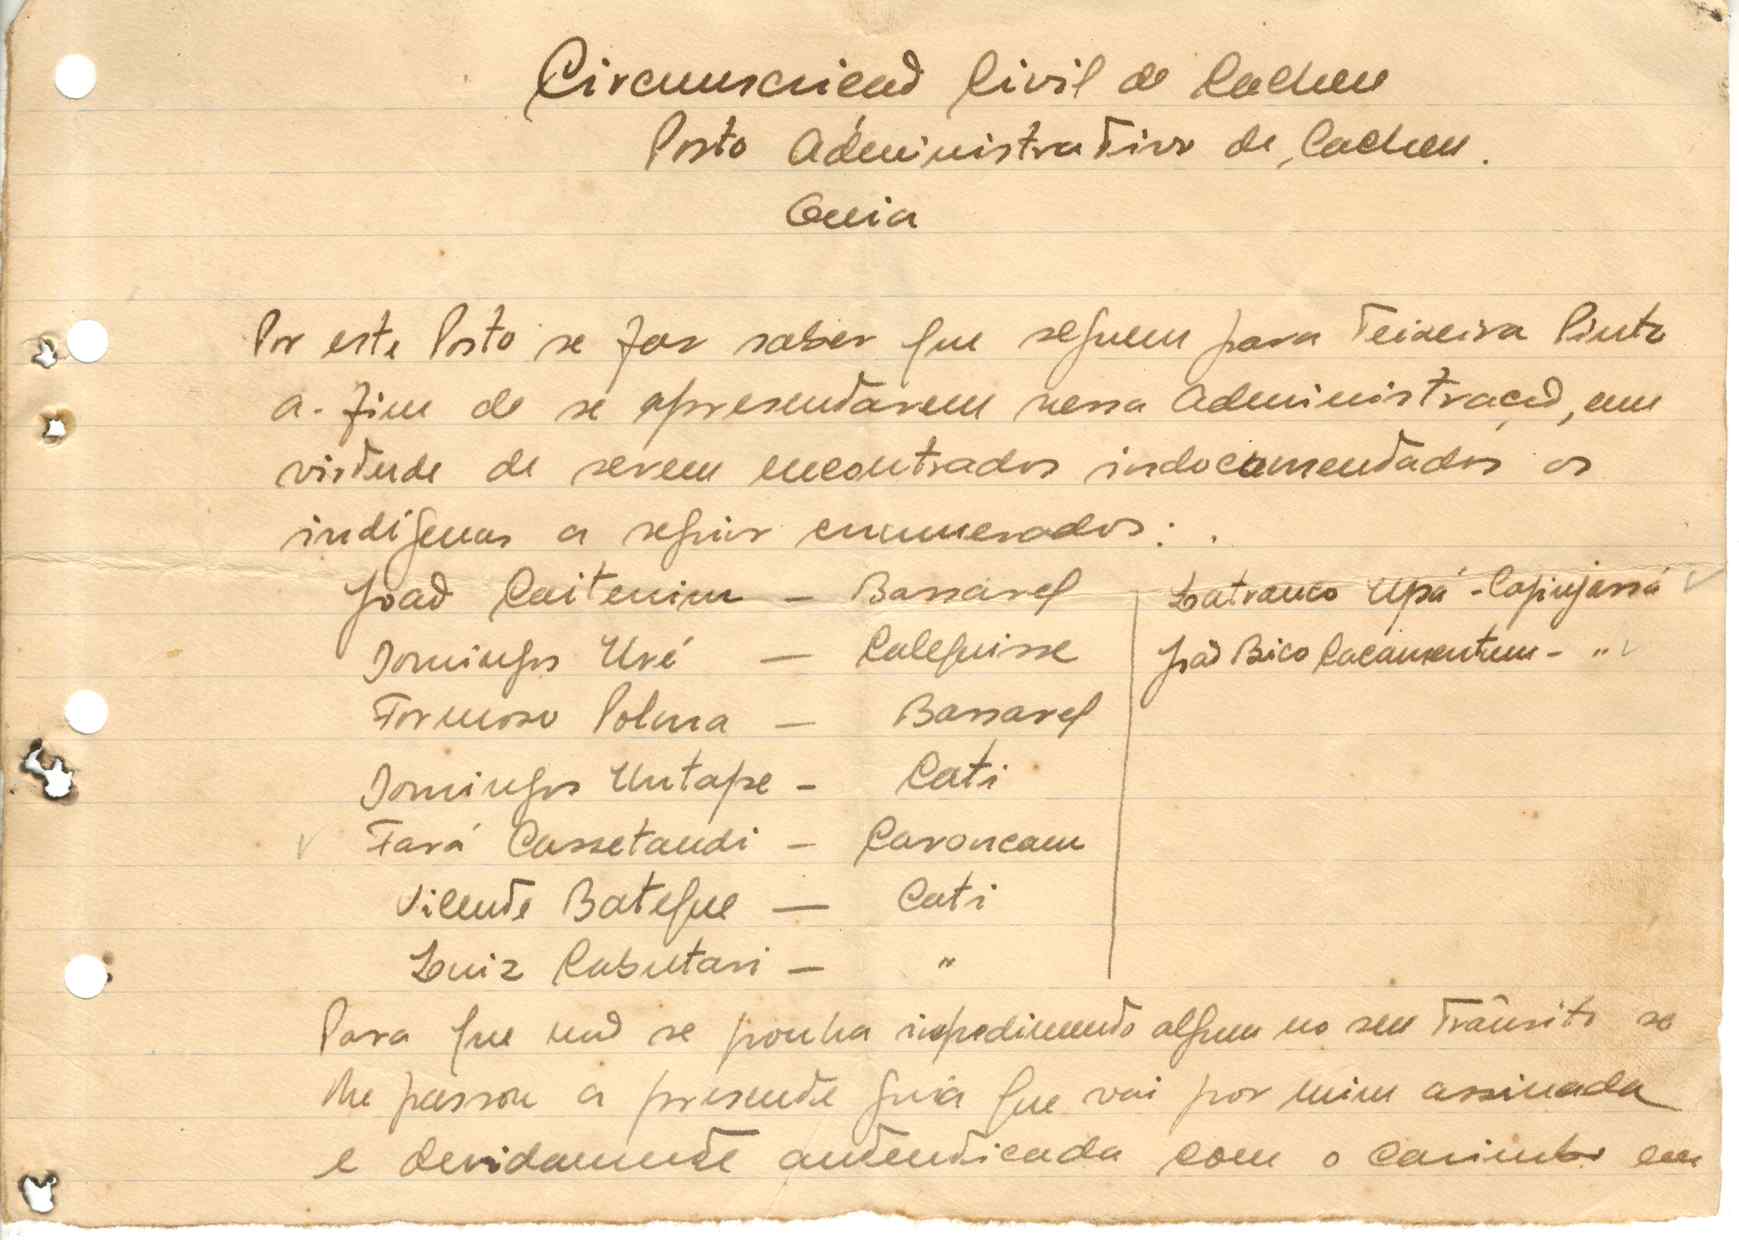 Circunscricão Civil de Cacheu
Posto Administrativo de Cacheu.
Guia
Por este Posto se faz saber que seguem para Teixeira Pinto
a-fim de se apresentarem nessa Administração, em
virtude de serem encontrados indocumentados os
indígenas a seguir enumerados:.
João Caitenim — Bassarel
Domingos Uré — Caleguisse
Formoso Polma — Bassarel
Domingos Untape — Cati
Fará Cassetandi — Caroncam
Vicente Bategue — Cati
Luiz Cabutari — "
Latranco Upá - Capinjassá
João Bico Cacamentum - "
Para que não se ponha impedimento algum no seu trânsito se
lhe passou a presente guia que vai por mim assinada
e devidamente autenticada com o carimbo em